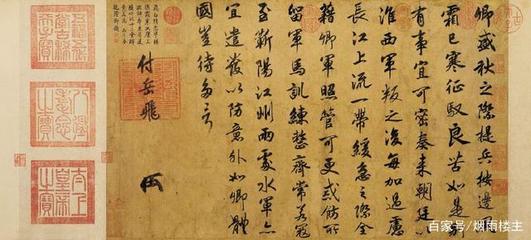 卿盛秋之際提兵按邊風
霜已寒征馭良苦如是別
有事宜可密奏來朝廷以
淮西軍叛之後每加過慮
長江上流一帶緩急之際全
藉卿軍照管可更戒飭所
留軍馬訓練整齊常若寇
至蘄陽江州兩處水軍亦
宜遣發以防意外如卿體
國豈待多言
付岳飛
八徵耄念之寶
太上皇帝之寶
百家号/烟雨楼主